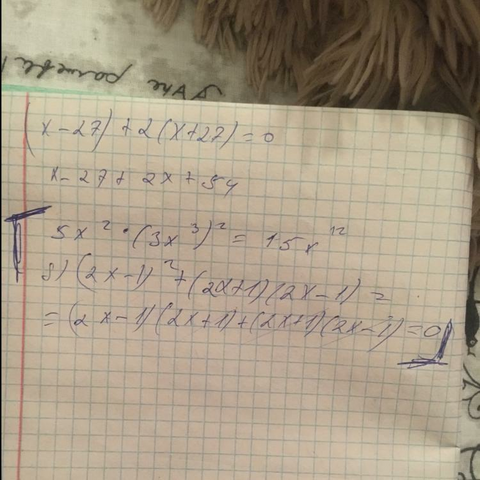 (x-27)+2(x+27)=0
x-27+2x+54
5x²·(3x³)²=15x¹²
д) (2x-1)²+(2x+1)(2x-1)=
=(2x-1)(2x+1)+(2x+1)(2x-1)=0